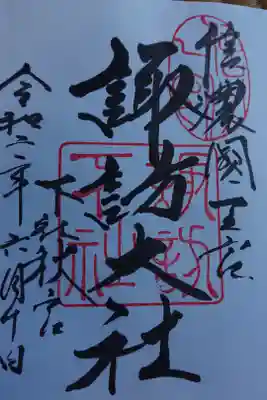 信濃國一宮
諏訪大社
下社秋宮
令和二年六月十日